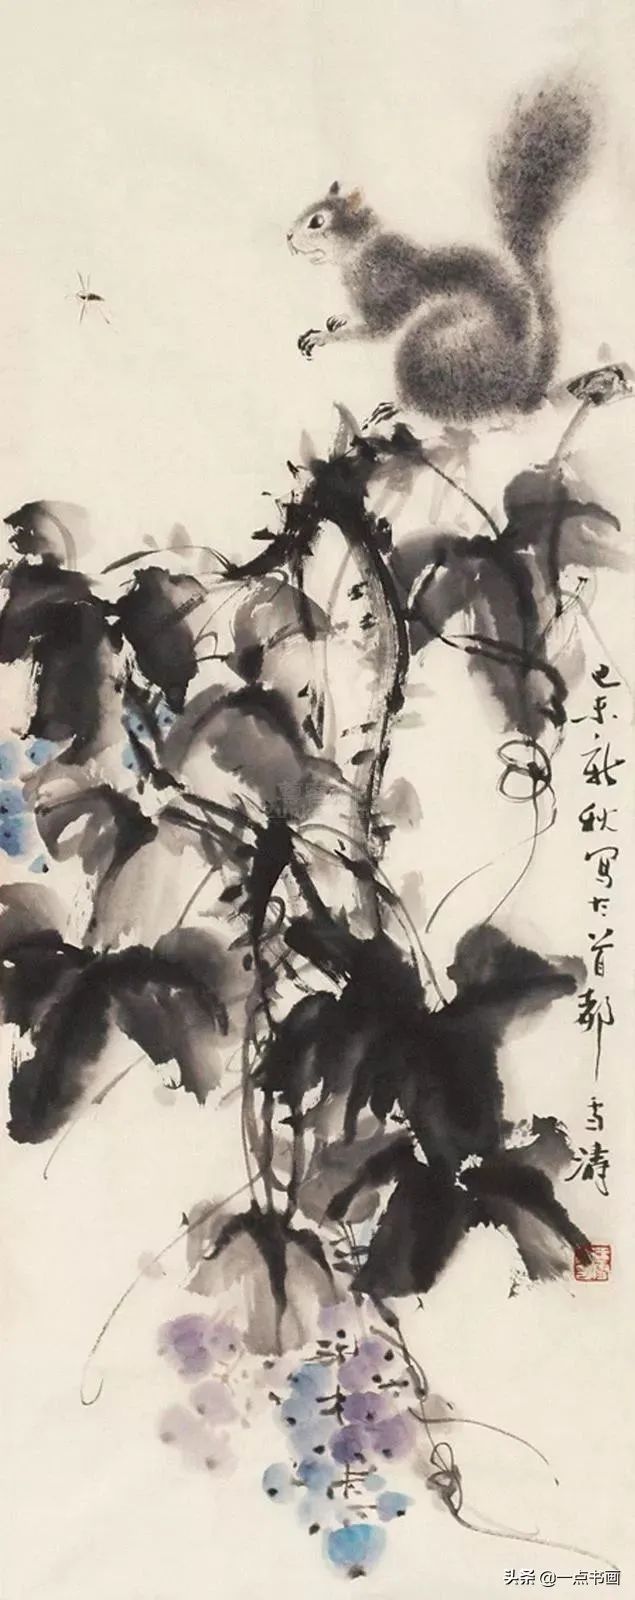 己未新秋写于首都
雪涛
头条 @一点书画